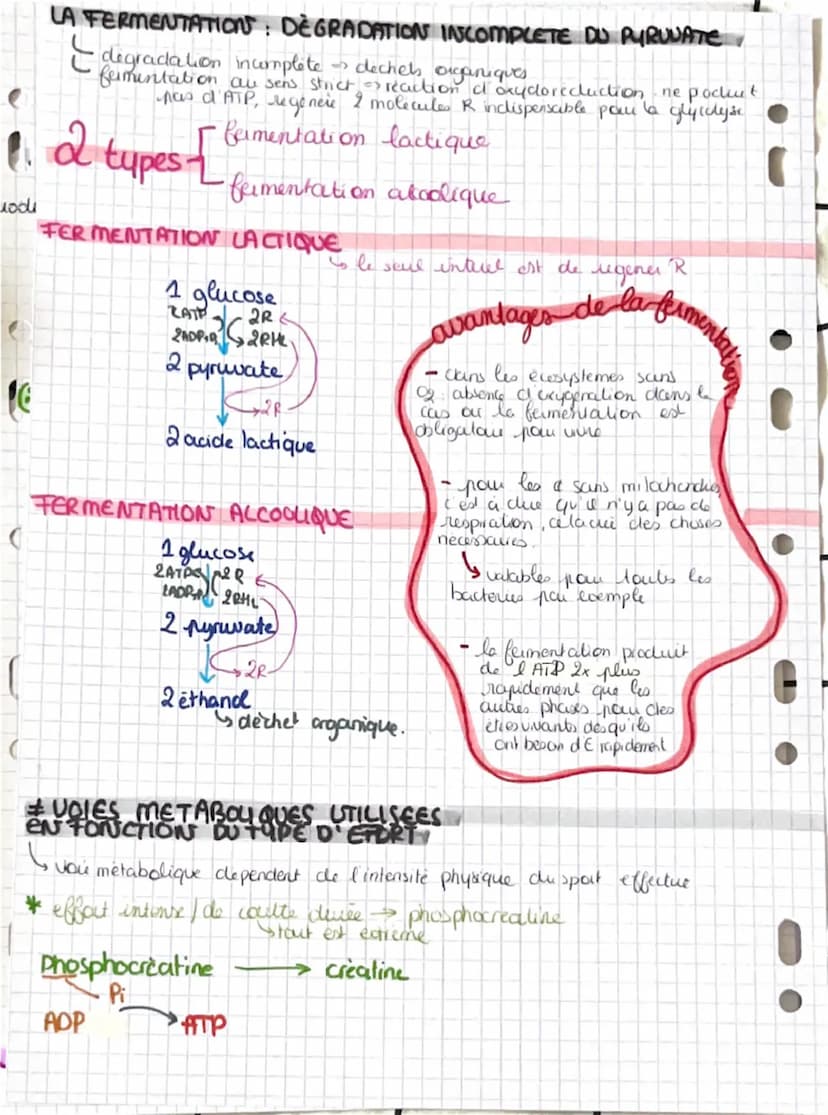 LA FERMENTATION : DÈGRADATION INCOMPLETE DU PYRUVATE
degradation incomplète → dechets organiques
fermentation au sens strict → réaction d'oxydoreduction ne poduit
pas d'ATP, regénère 2 molecules R indispensable pour la glycolyse
2 types
fermentation lactique
fermentation alcoolique
FERMENTATION LACTIQUE
le seul interet est de regener R
1 glucose
2ATP 2R
2ADP+Pi 2RH2
2 pyruvate
2R
2 acide lactique
avantages de la fermentation
- dans les écosystemes sans
O2 absence d'oxygeration dans le
cas ou la fermentation est
obligatoire pour vivre
- pour les ¢ sans mitochondries
c'est à dire qu'il n'y a pas de
respiration, cela crée des choses
necessaires.
valables pour toutes les
bacteries par exemple
- la fermentation produit
de l'ATP 2x plus
rapidement que les
autres phases pour des
êtres vivants des qu'ils
ont besoin d'E rapidement
FERMENTATION ALCOOLIQUE
1 glucose
2ATP 2R
2ADP+Pi 2RH2
2 pyruvate
2R
2 éthanol
déchet organique.
≠ VOIES METABOLIQUES UTILISEES
EN FONCTION DU TYPE D'EFORT
voie métabolique dependent de l'intensité physique du sport effectue
* effort intense / de courte durée → phosphocreatine
tout est extreme
phosphocrèatine → crèatine
Pi
ADP → ATP